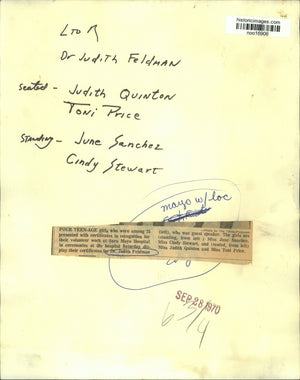 historicimages.com
noo16906
L to R
Dr Judith Feldman
seated - Judith Quinton
Toni Price
Standing - June Sanchez
Cindy Stewart
mayo w/loc
FOUR TEEN-AGE girls, who were among 25
presented with certificates in recognition for
their volunteer work at Sara Mayo Hospital
in ceremonies at the hospital Saturday, dis-
play their certificates for Dr. Judith Feldman
(left), who was guest speaker. The girls are
(standing, from left) Miss June Sanchez,
Miss Cindy Stewart, and (seated, from left)
Miss Judith Quinton and Miss Toni Price.
SEP 28 1970